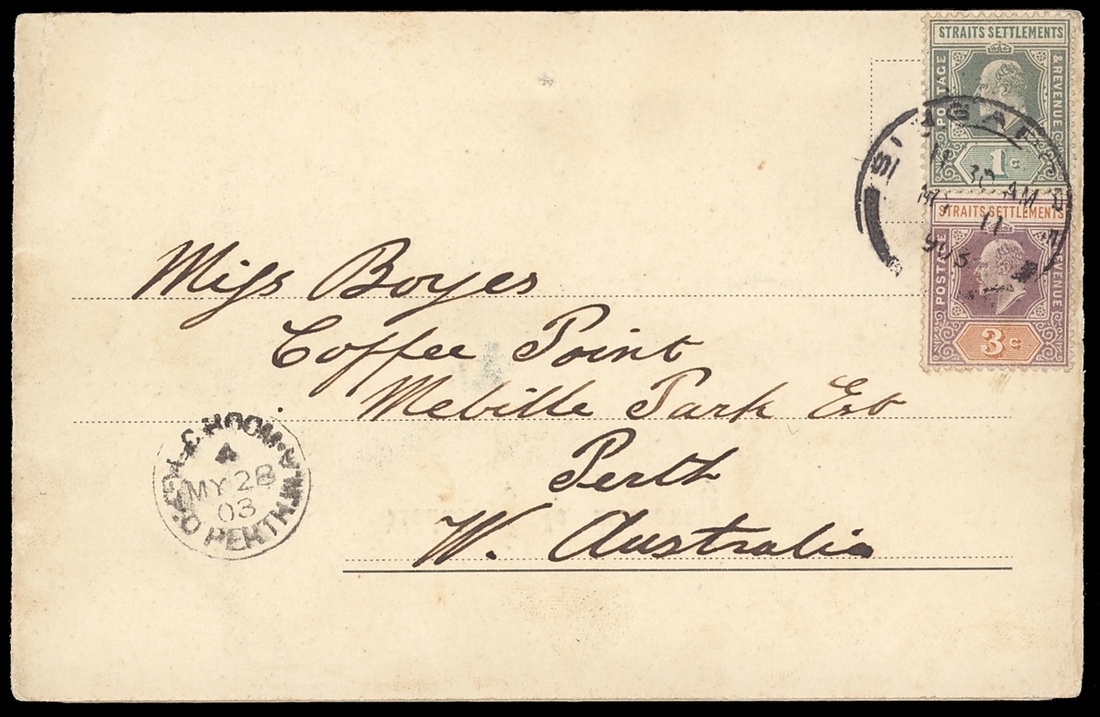 STRAITS SETTLEMENTS
POSTAGE & REVENUE
1c
SINGAPORE
30 AM
MY 11
903
STRAITS SETTLEMENTS
POSTAGE & REVENUE
3c
Miss Boyes
Coffee Point
Melville Park Est
Perth
W. Australia
ROOM
4
MY 28
03
G.P.O PERTH.W.A